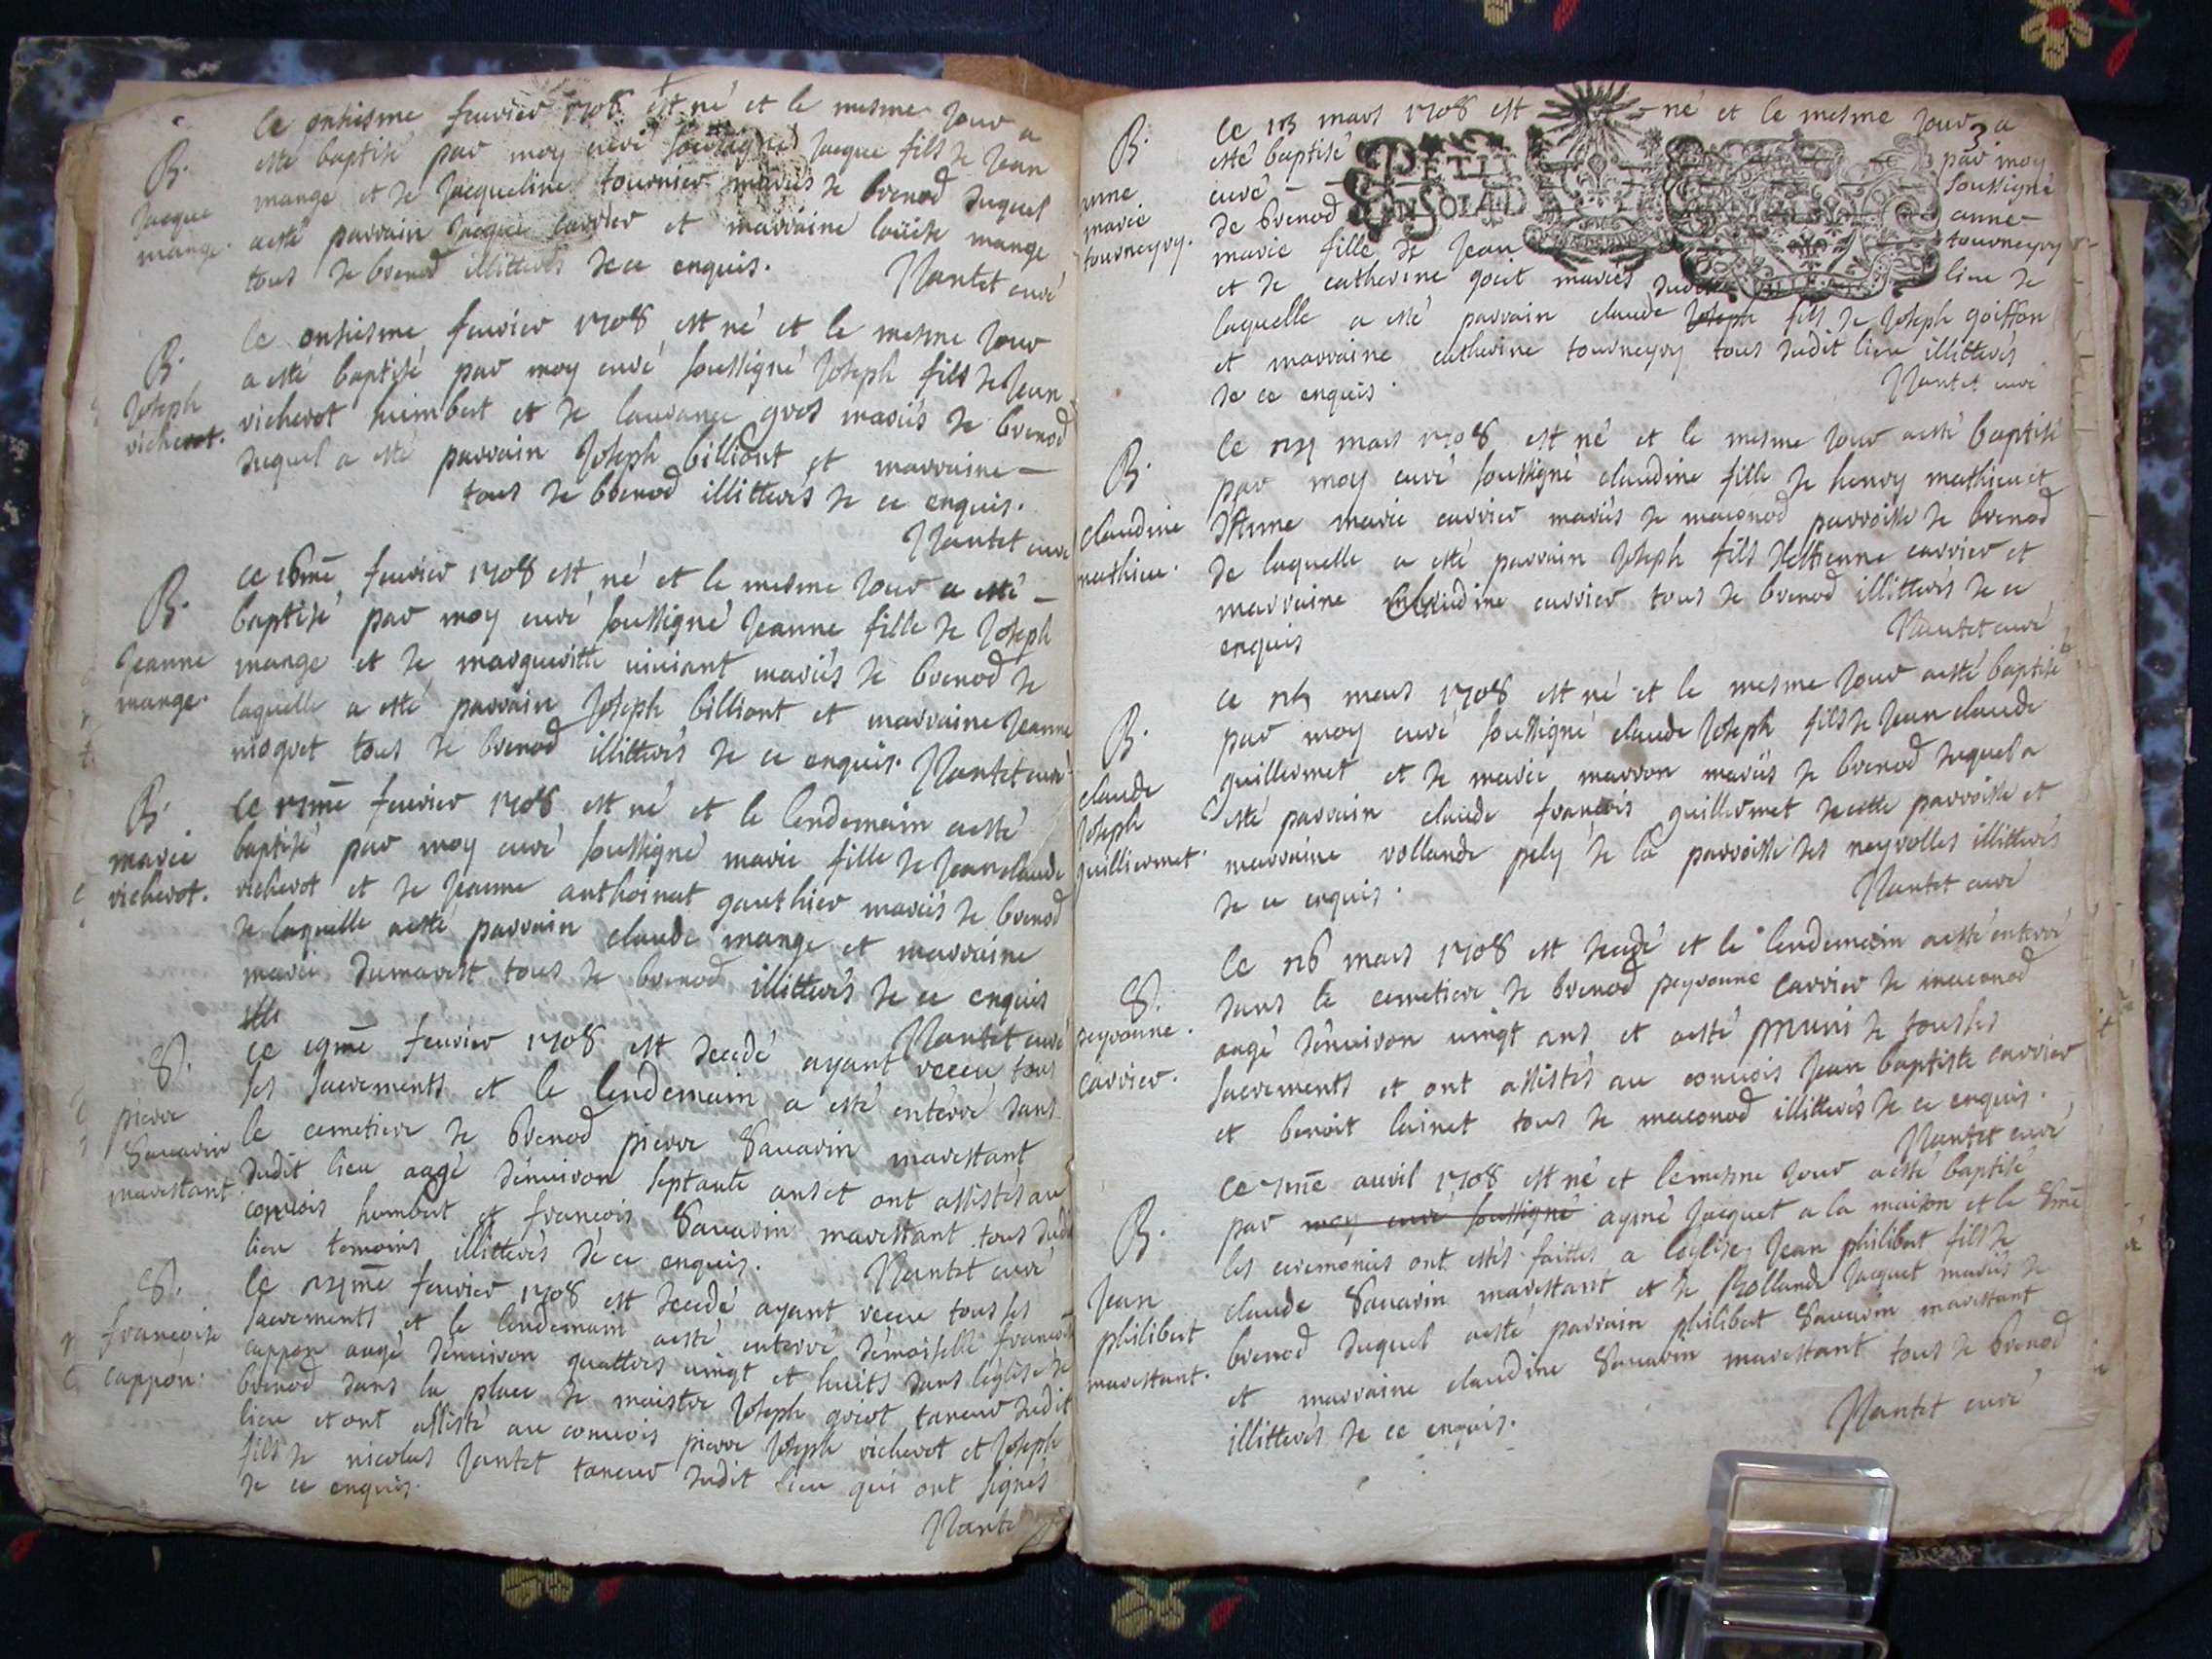 B.
Jacque
mange.
le onhiesme feuvier 1708 est né et le mesme Jour a
esté baptisé par moy curé soussigné Jacque fils de Jean
mange et de Jacqueline tournier mariés de brenod duquel
a esté parrain Jacque carrier et marraine loüise mange
tous de brenod illitterés de ce enquis.
Nantet curé
B.
Joseph
vicherot.
le onhiesme feuvier 1708 est né et le mesme Jour
a esté baptisé par moy curé soussigné Joseph fils de Jean
vicherot humbert et de laurance gros mariés de brenod
duquel a esté parrain Joseph billiont et marraine —
tous de brenod illitterés de ce enquis.
Nantet curé
B.
Jeanne
mange.
ce 16me feuvier 1708 est né et le mesme Jour a esté —
baptisé par moy curé soussigné Jeanne fille de Joseph
mange et de margueritte viviant mariés de brenod de
laquelle a esté parrain Joseph billiont et marraine Jeanne
moguet tous de brenod illitterés de ce enquis. Nantet curé
B.
marie
vicherot.
ce me feuvier 1708 est né et le lendemain a esté
baptisé par moy curé soussigné marie fille de Jean claude
vicherot et de Jeanne anthoinat gauthier mariés de brenod
de laquelle a esté parrain claude mange et marraine
marie dumarest tous de brenod illitterés de ce enquis
Nantet curé
S.
pierre
Savarin
marestant
ce 19me feuvier 1708 est decedé ayant receu tous
les sacrements et le lendemain a esté enterré dans
le cemetiere de brenod pierre Savarin marestant
dudit lieu aagé d'environ septante ans et ont assistés au
convois humbert et francois Savarin marestant tous dudit
lieu temoins illitterés de ce enquis.
Nantet curé
S.
francoise
cappon.
le me feuvier 1708 est decedé ayant receu tous les
sacrements et le lendemain a esté enterré demoiselle francoise
cappon aagé d'environ quattres vingt et huits dans l'eglise de
brenod dans la place de maistre Joseph griot taneur dudit
lieu et ont assisté au convois pierre Joseph vicherot et Joseph
fils de nicolas Jantet taneur dudit lieu qui ont signés
de ce enquis.
Nantet
3
B.
anne
marie
tourneyry.
ce 13 mars 1708 est — né et le mesme Jour a
esté baptisé par moy
curé — soussigné
de brenod anne —
marie fille de Jean tourneyry
et de catherine goit mariés dudit lieu de
laquelle a esté parrain claude Joseph fils de Joseph goiffon
et marraine catherine tourneyry tous dudit lieu illitterés
de ce enquis.
Nantet curé
PETIT
EN SOLAD
B.
claudine
mathieu.
le mars 1708 est né et le mesme Jour a esté baptisé
par moy curé soussigné claudine fille de henry mathieu et
d'Anne marie carrier mariés de maconod parroisse de brenod
de laquelle a esté parrain Joseph fils d'ettienne carrier et
marraine claudine carrier tous de brenod illitterés de ce
enquis
Nantet curé
B.
claude
Joseph
guilliermet.
ce mars 1708 est né et le mesme Jour a esté baptisé
par moy curé soussigné claude Joseph fils de Jean claude
guillermet et de marie marron mariés de brenod duquel a
esté parrain claude francois guillermet de cette parroisse et
marraine rollande pely de la parroisse des neyrolles illitterés
de ce enquis.
Nantet curé
S.
peyronne.
carrier.
le 26 mars 1708 est decedé et le lendemain a esté enterré
dans le cemetiere de brenod peyronne carrier de maconod
aagé d'environ vingt ans et a esté muni de tous les
sacrements et ont assistés au convois Jean baptiste carrier
et benoit lainet tous de maconod illitterés de ce enquis.
Nantet curé
B.
Jean
philibert
marestant.
ce 7me avril 1708 est né et le mesme Jour a esté baptisé
par moy curé soussigné aymé Jacquet a la maison et le 8me
les ceremonies ont estés faittes a l'eglise, Jean philibert fils de
claude Savarin marestant et de Rollande Jacquet mariés de
brenod duquel a esté parrain philibert Savarin marestant
et marraine claudine Savarin marestant tous de brenod
illitterés de ce enquis.
Nantet curé